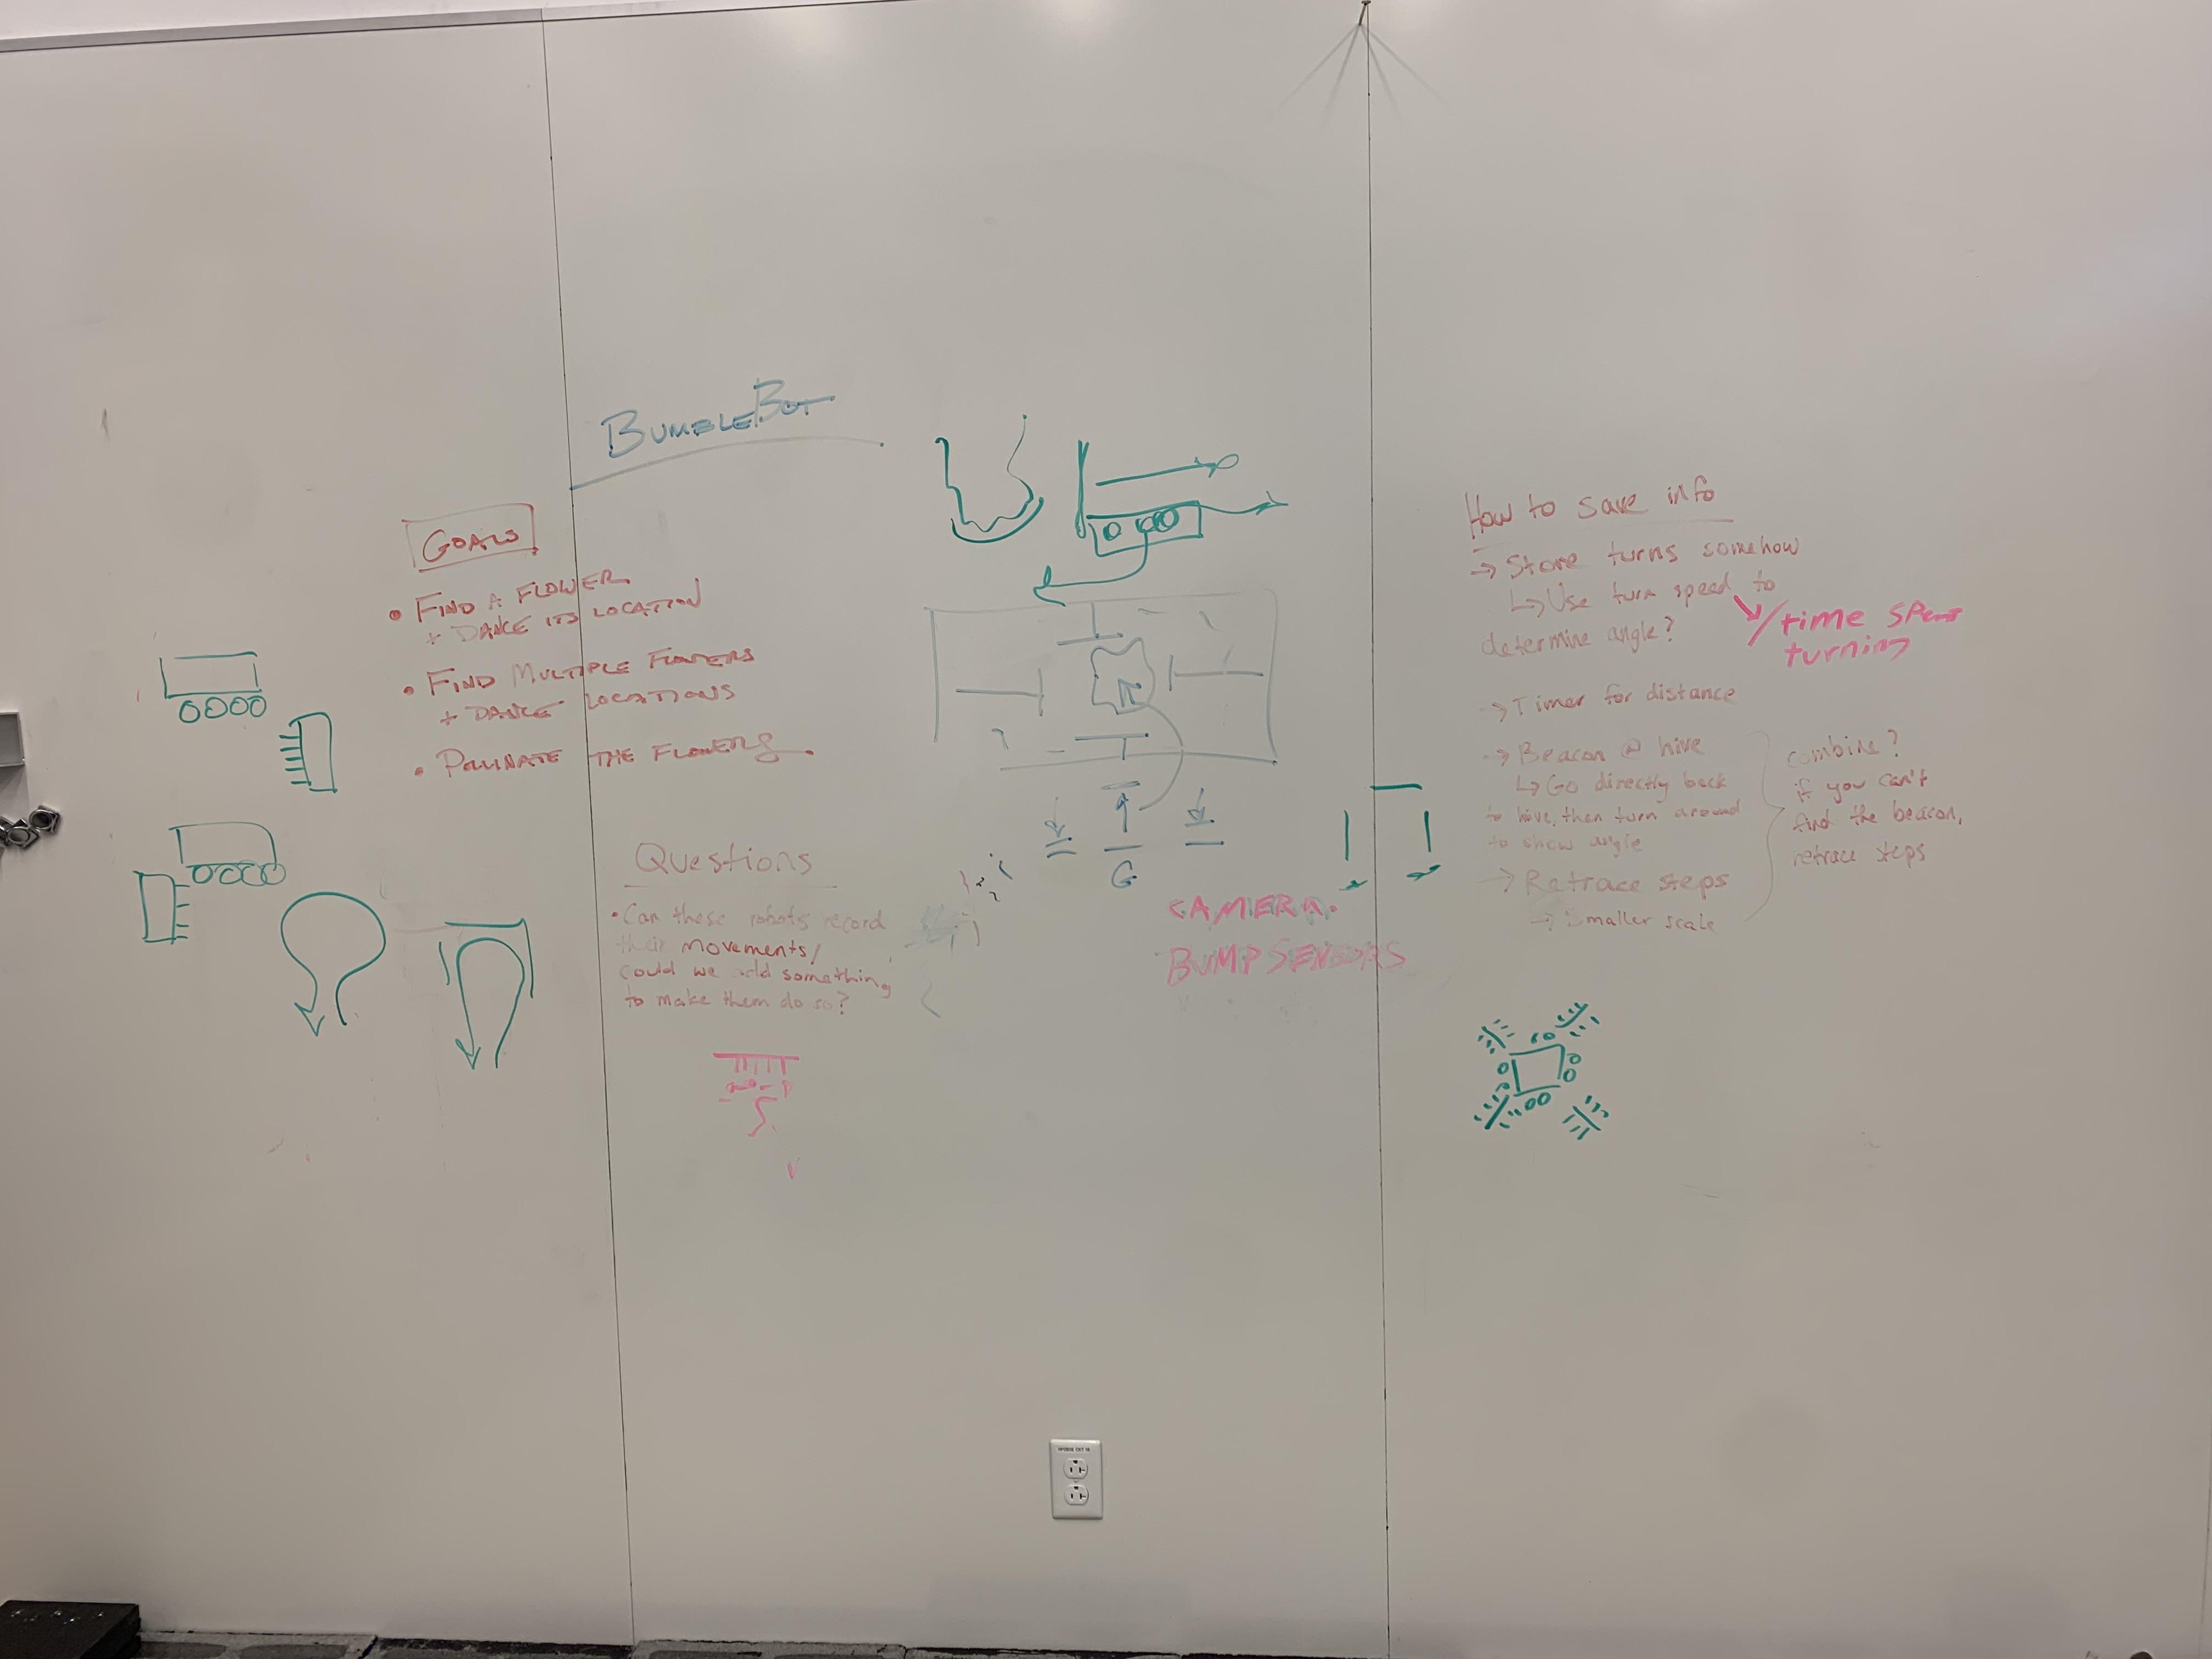 BUMBLEBOT
GOALS
• FIND A FLOWER
+ DANCE ITS LOCATION
• FIND MULTIPLE FLOWERS
+ DANCE LOCATIONS
• POLLINATE THE FLOWERS
Questions
• Can these robots record
their movements/
could we add something
to make them do so?
G
CAMERA.
BUMP SENSORS
How to save info
→ Store turns somehow
↳ Use turn speed to
determine angle?
/time spent
turning
→ Timer for distance
→ Beacon @ hive
↳ Go directly back
to hive, then turn around
to show angle
→ Retrace steps
→ Smaller scale
combine?
if you can't
find the beacon,
retrace steps